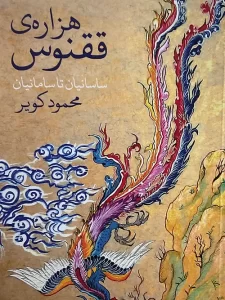 هزاره‌ی
ققنوس
ساسانیان تا سامانیان
محمود کویر